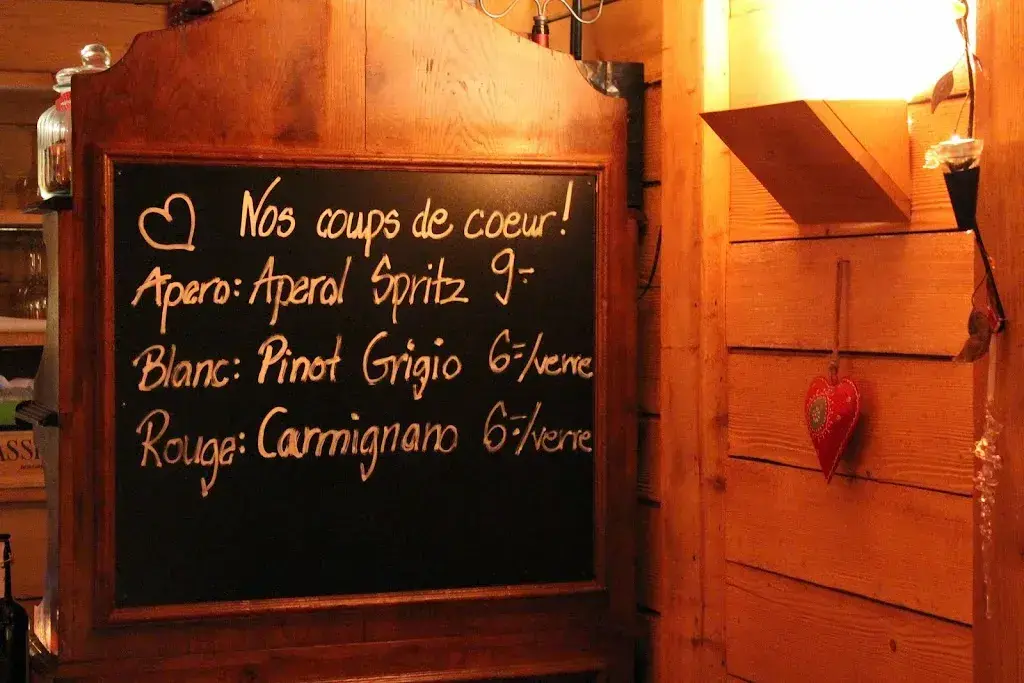 Nos coups de coeur!
Apero: Aperol Spritz 9.-
Blanc: Pinot Grigio 6.-/verre
Rouge: Carmignano 6.-/verre